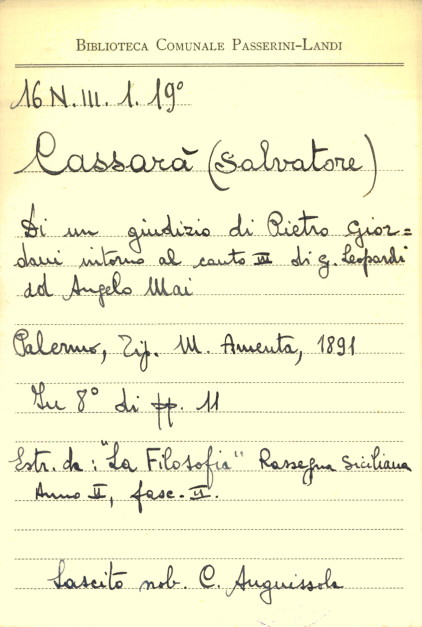 BIBLIOTECA COMUNALE PASSERINI-LANDI
16 N. III. 1. 19°
Cassarà (Salvatore)
Di un giudizio di Pietro Gior=
dani intorno al canto III di G. Leopardi
ad Angelo Mai
Palermo, Tip. M. Amenta, 1891
In 8° di pp. 11
Estr. da: "La Filosofia" Rassegna Siciliana
Anno II, fasc. II.
Lascito nob. C. Anguissola